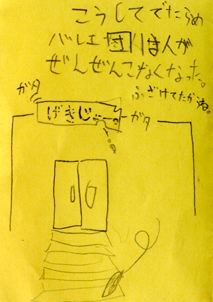 こうしてでたらめ
バレエ団はほんが
ぜんぜんこなくなった。
ふざけてたがね。
ガタ
げきじょう
ガタ